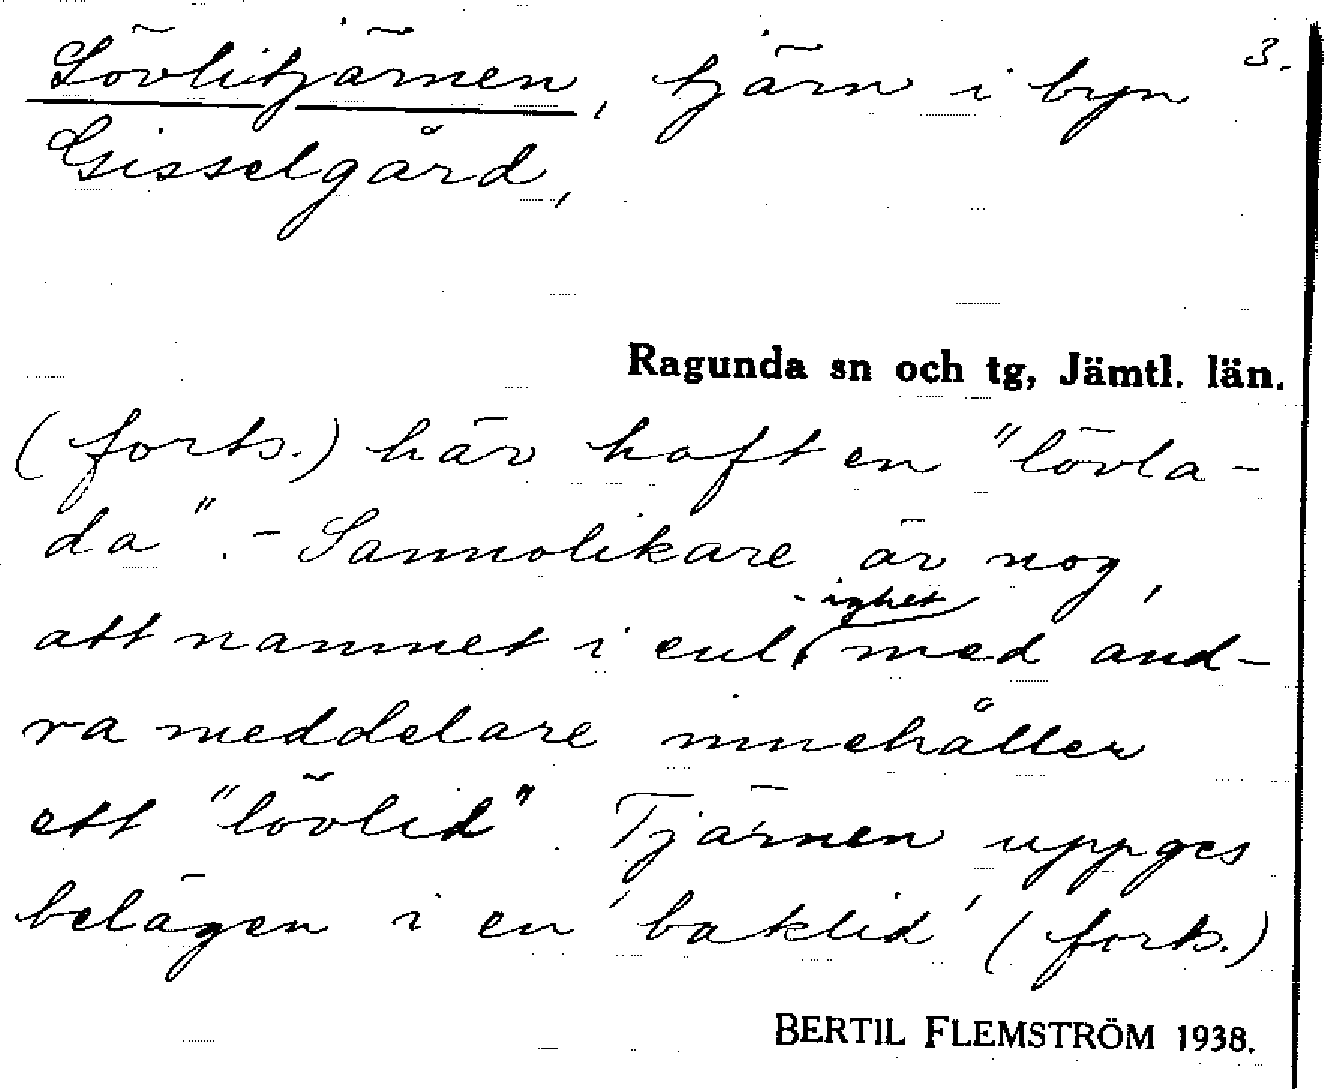 Lövlitjärnen, tjärn i byn 3.
Gisselgård,
Ragunda sn och tg, Jämtl. län.
(forts.) här haft en "lövla-
da". - Sannolikare är nog,
-ighet
att namnet i enl. med and-
ra meddelare innehåller
ett "lövlid". Tjärnen uppges
belägen i en 'baklid' (forts.)
BERTIL FLEMSTRÖM 1938.